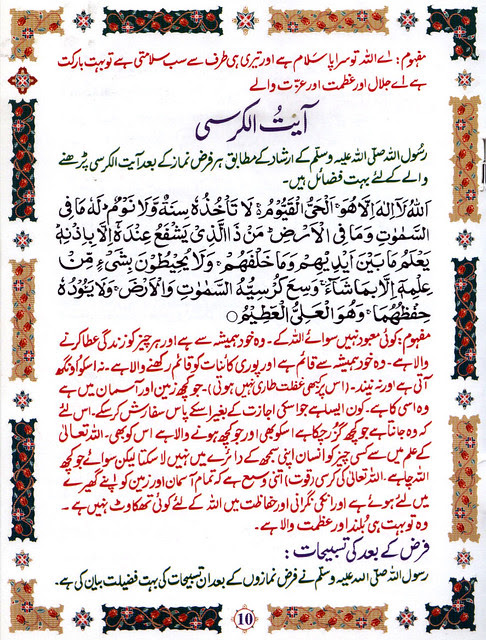 مفہوم: اے اللہ تو سراپا سلام ہے اور تیری ہی طرف سے سب سلامتی ہے تو بہت بابرکت
ہے اے جلال اور عظمت اور عزت والے
آیتُ الکرسی
رسُول اللہ صلّی اللہ علیہ وسلّم کے ارشاد کے مطابق ہر فرض نماز کے بعد آیت الکرسی پڑھنے
والے کے لئے بہت فضائل ہیں۔
اَللهُ لَآ اِلٰهَ اِلَّا هُوَ ۚ اَلْحَيُّ الْقَيُّوْمُ ۚ لَا تَاْخُذُهٗ سِنَةٌ وَّلَا نَوْمٌ ؕ لَهٗ مَا فِى
السَّمٰوٰتِ وَمَا فِى الْاَرْضِ ؕ مَنْ ذَا الَّذِىْ يَشْفَعُ عِنْدَهٗٓ اِلَّا بِاِذْنِهٖ ؕ
يَعْلَمُ مَا بَيْنَ اَيْدِيْهِمْ وَمَا خَلْفَهُمْ ۚ وَلَا يُحِيْطُوْنَ بِشَىْءٍ مِّنْ
عِلْمِهٖٓ اِلَّا بِمَا شَآءَ ۚ وَسِعَ كُرْسِيُّهُ السَّمٰوٰتِ وَالْاَرْضَ ۚ وَلَا يَئُوْدُهٗ
حِفْظُهُمَا ۚ وَهُوَ الْعَلِىُّ الْعَظِيْمُ ○
مفہوم: کوئی معبود نہیں سوائے اللہ کے۔ وہ خود ہمیشہ سے ہے اور ہر چیز کو زندگی عطا کرنے
والا ہے۔ وہ خود ہمیشہ سے قائم ہے اور پوری کائنات کو قائم رکھنے والا ہے۔ نہ اسکو اونگھ
آتی ہے اور نہ نیند۔ (اس پر کبھی غفلت طاری نہیں ہوتی)۔ جو کچھ زمین اور آسمان میں ہے
وہ اسی کا ہے۔ کون ایسا ہے جو اسکی اجازت کے بغیر اسکے پاس سفارش کر سکے۔ اس لئے
کہ وہ جانتا ہے جو کچھ گزر چکا ہے اسکو بھی اور جو کچھ ہونے والا ہے اس کو بھی۔ اللہ تعالیٰ
کے علم میں سے کسی چیز کو انسان اپنی سمجھ کے دائرے میں نہیں لا سکتا لیکن سوائے جو کچھ
اللہ چاہے۔ اللہ تعالیٰ کی کرسی (قوت) اتنی وسیع ہے کہ تمام آسمان اور زمین کو اپنے گھیرے
میں لئے ہوئے ہے اور انکی نگرانی اور حفاظت میں اللہ کے لئے کوئی تھکاوٹ نہیں ہے۔
وہ تو بہت ہی بُلند اور عظمت والا ہے۔
فرض کے بعد کی تسبیحات :
رسول اللہ صلّی اللہ علیہ وسلّم نے فرض نمازوں کے بعد ان تسبیحات کی بہت فضیلت بیان کی ہے۔
10